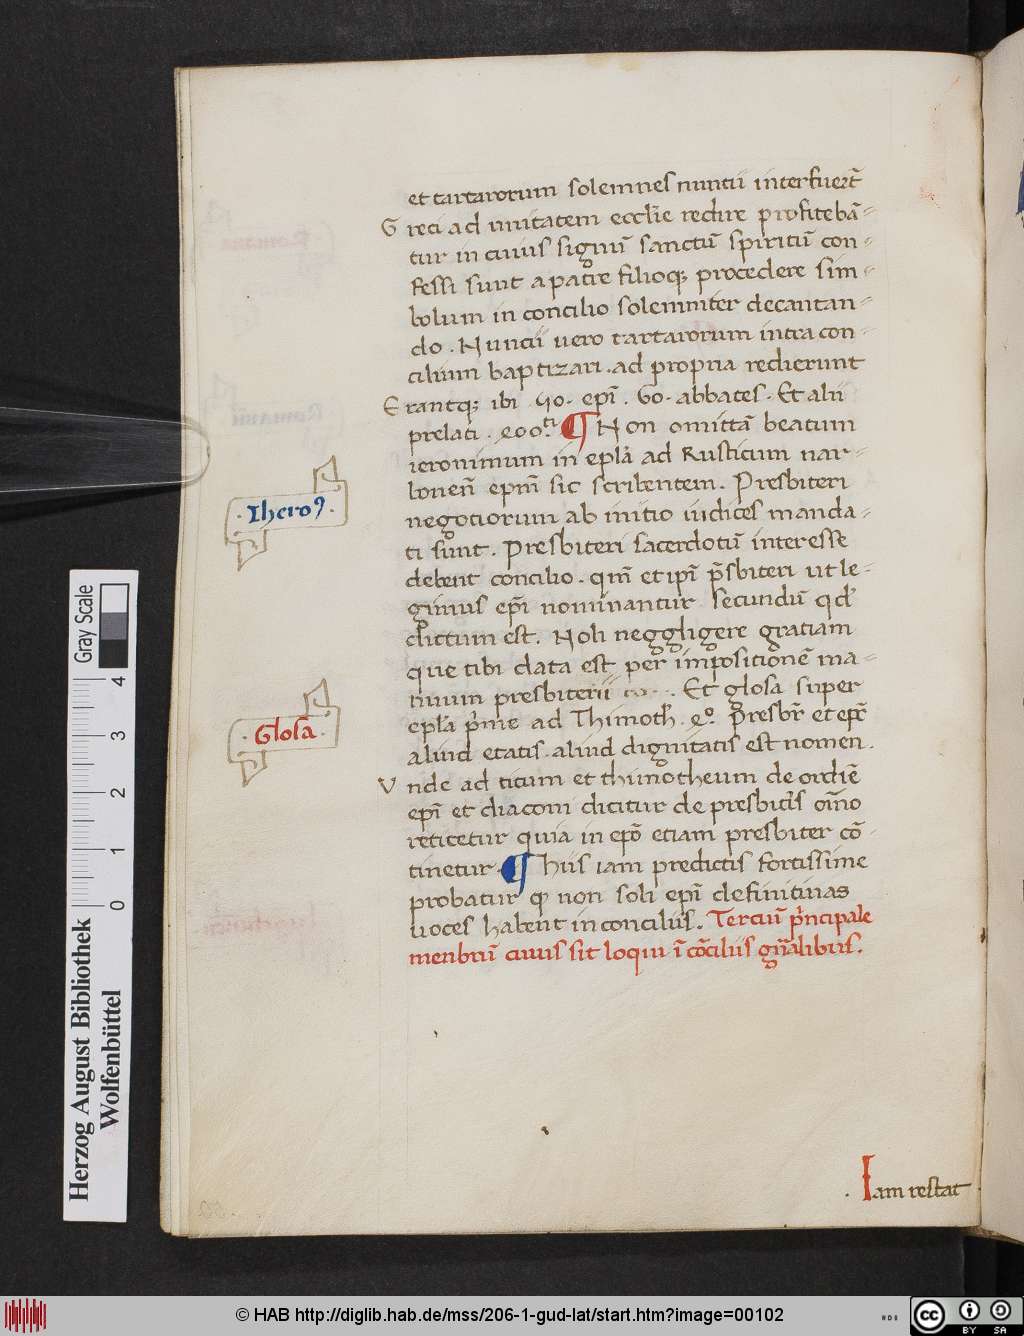 et tartarorum solemnes nuntii interfuerūt
Greci ad unitatem eccl̄ie redire profitebā-
tur in cuius signū sanctū spiritū con-
fessi sunt a patre filioq; procedere sim-
bolum in concilio solemniter decantan-
do. Nuncii vero tartarorum intra con-
cilium baptizari. ad propria redierunt
Erantq; ibi .50. epī. 60. abbates. Et alii
prelati.
¶ Non omittā beatum
ieronimum in epl̄a ad Rusticum nar-
bonen̄ epm̄ sic scribentem. Presbiteri
negotiorum ab initio iudices manda-
ti sunt. Presbiteri sacerdotū interesse
debent concilio. qm̄ et ipī p̄sbiteri ut le-
gimus ep̄i nominantur secundū qd̛
dictum est. Noli neggligere gratiam
que tibi data est per impositionē ma-
nuum presbiterii. Et glosa super
epl̄a p̄me ad Thimoth̄. Presbr̄ et epc̄
aliud etatis. aliud dignitatis est nomen.
Unde ad titum et thimotheum de ordiē
epī et diaconi dicitur de presbit̄is oīno
reticetur quia in epō etiam presbiter cō-
tinetur. ¶ Hiis iam predictis fortissime
probatur ꝙ non soli epī definitivas
uoces habent in conciliis. Terciū p̄ncipale
menbrū cuius sit loqui ī cōciliis gn̄alibus.
.Ihero⁹.
.Glosa.
.Iam restat.
Herzog August Bibliothek
Wolfenbüttel
0 1 2 3 4
Gray Scale
© HAB http://diglib.hab.de/mss/206-1-gud-lat/start.htm?image=00102
cc BY SA